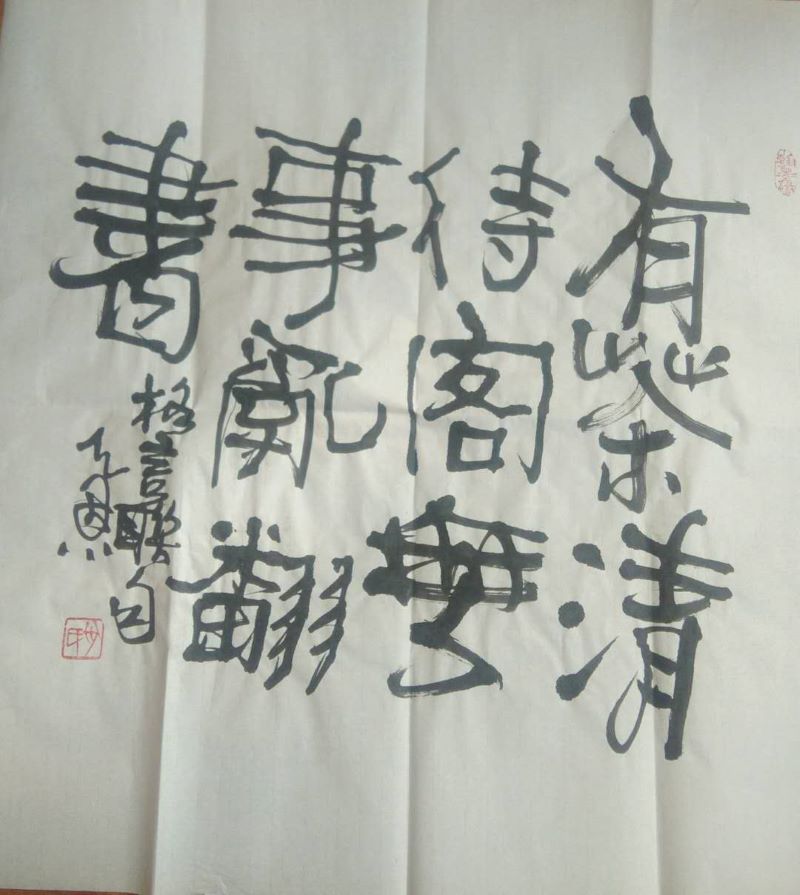 有茶清
待客無
事亂翻
書
格言聯句